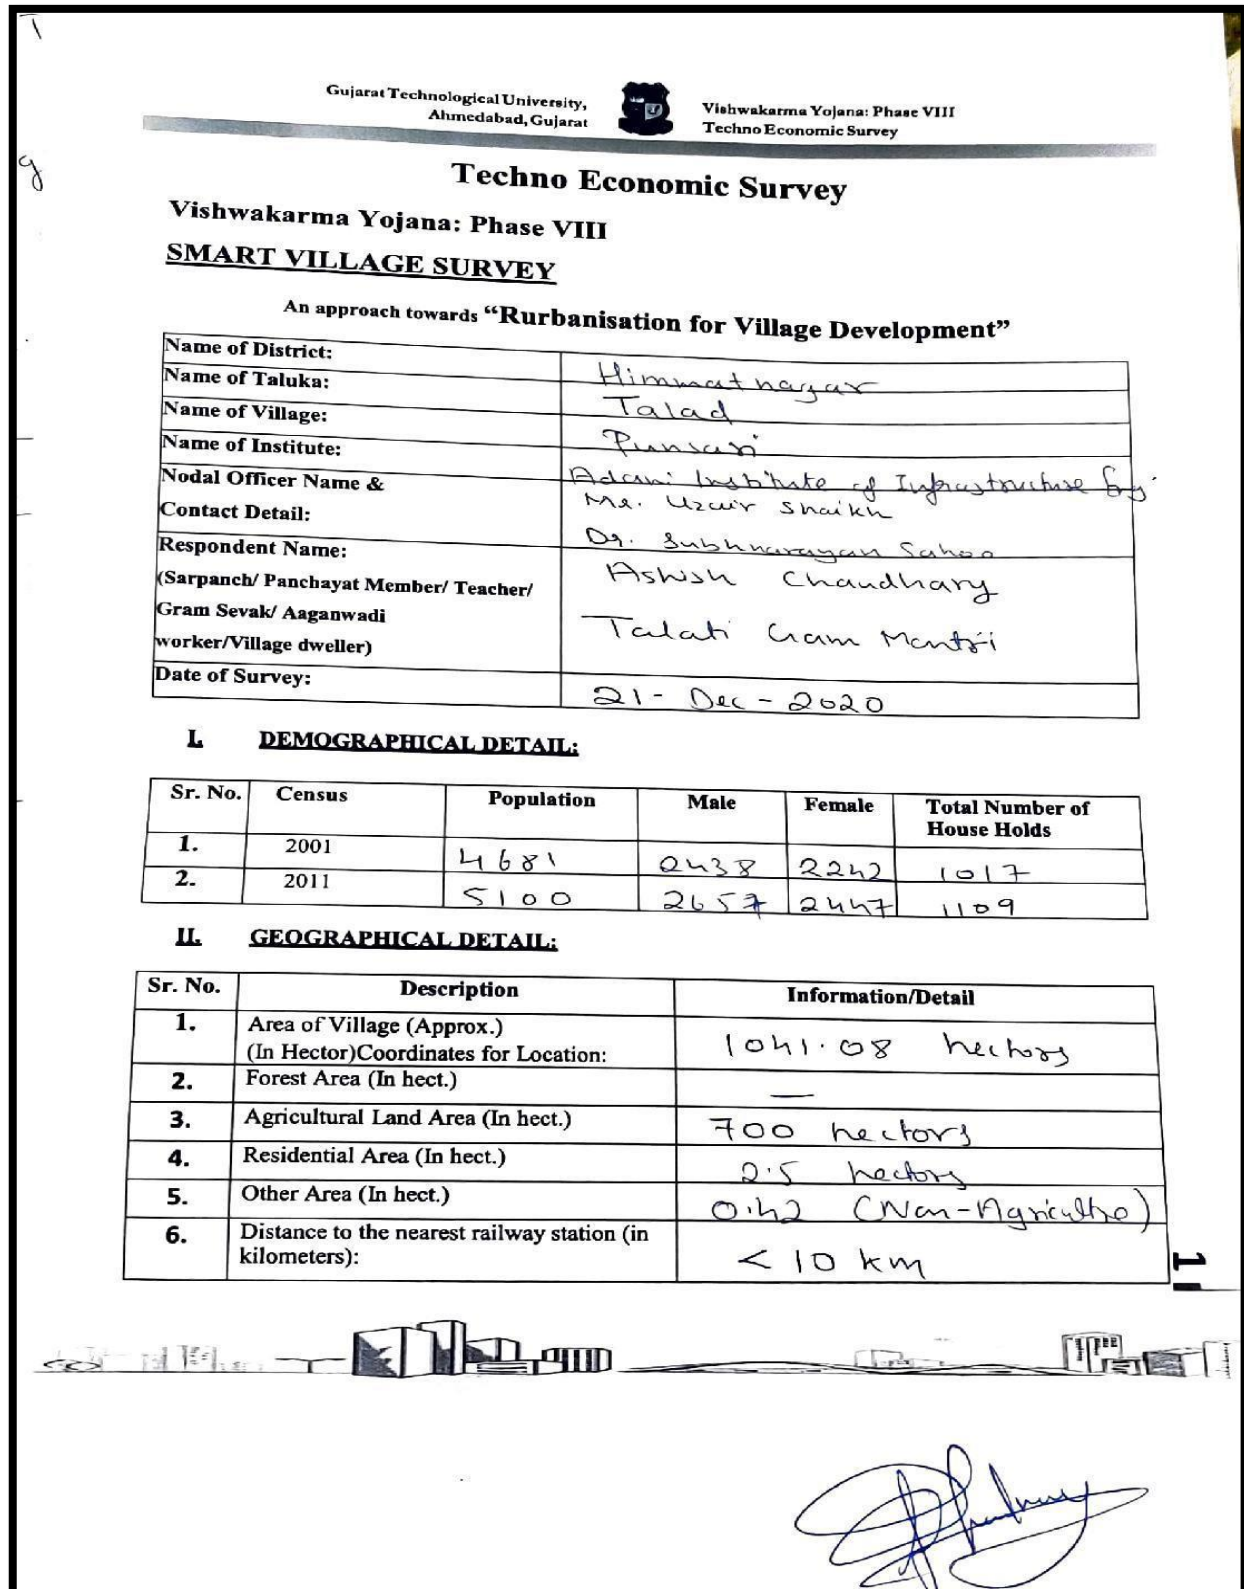 Gujarat Technological University,
Ahmedabad, Gujarat
Vishwakarma Yojana: Phase VIII
Techno Economic Survey
Techno Economic Survey
Vishwakarma Yojana: Phase VIII
SMART VILLAGE SURVEY
An approach towards “Rurbanisation for Village Development”
Name of District: Himmatnagar
Name of Taluka: Talad
Name of Village: Punsari
Name of Institute: Adani Institute of Infrastructure
Nodal Officer Name & Mr. Uzair Shaikh
Contact Detail: Dr. Subhnarayan Sahoo
Respondent Name: Ashish Chaudhary
(Sarpanch/ Panchayat Member/ Teacher/
Gram Sevak/ Aaganwadi Talati Gram Mantri
worker/Village dweller)
Date of Survey: 21 - Dec - 2020
I. DEMOGRAPHICAL DETAIL:
Sr. No. Census Population Male Female Total Number of
House Holds
1. 2001 4681 2438 2242 1017
2. 2011 5100 2657 2447 1109
II. GEOGRAPHICAL DETAIL:
Sr. No. Description Information/Detail
1. Area of Village (Approx.)
(In Hector)Coordinates for Location: 1041.08 hectors
2. Forest Area (In hect.) —
3. Agricultural Land Area (In hect.) 700 hectors
4. Residential Area (In hect.) 2.5 hectors
5. Other Area (In hect.) 0.42
6. Distance to the nearest railway station (in
kilometers): < 10 km
1